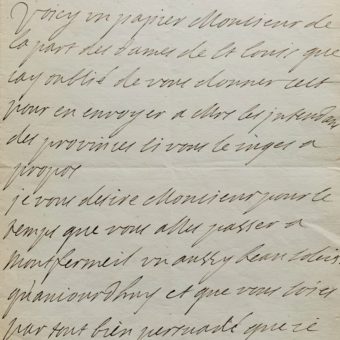 Voicy un papier Monsieur de
la part des dames de St Louis que
iay oublié de vous donner cest
pour en envoyer a Mrs les intendans
des provinces si vous le iuges a
propos
je vous desire Monsieur pour le
temps que vous alles passer a
Montfermeil un aussy beau soleil
quauiourdhuy et que vous soies
par tout bien persuadé que ie